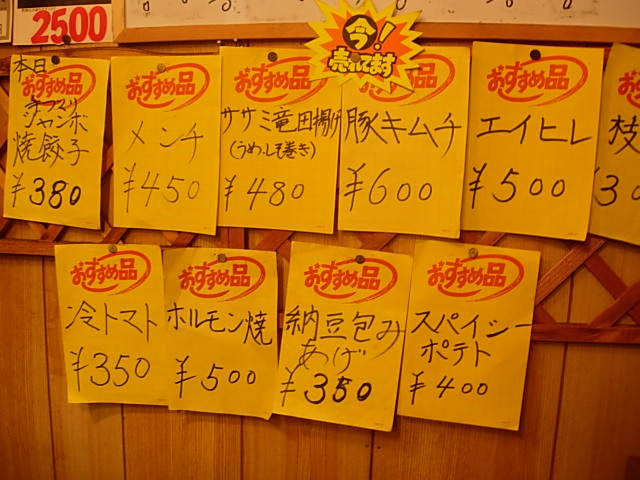 2500
今!
売れてます
本日
おすすめ品
手づくり
ジャンボ
焼餃子
¥380
おすすめ品
メンチ
¥450
おすすめ品
ササミ竜田揚げ
(うめ、しそ巻き)
¥480
おすすめ品
豚キムチ
¥600
おすすめ品
エイヒレ
¥500
枝
¥30
おすすめ品
冷トマト
¥350
おすすめ品
ホルモン焼
¥500
おすすめ品
納豆包み
あげ
¥350
おすすめ品
スパイシー
ポテト
¥400